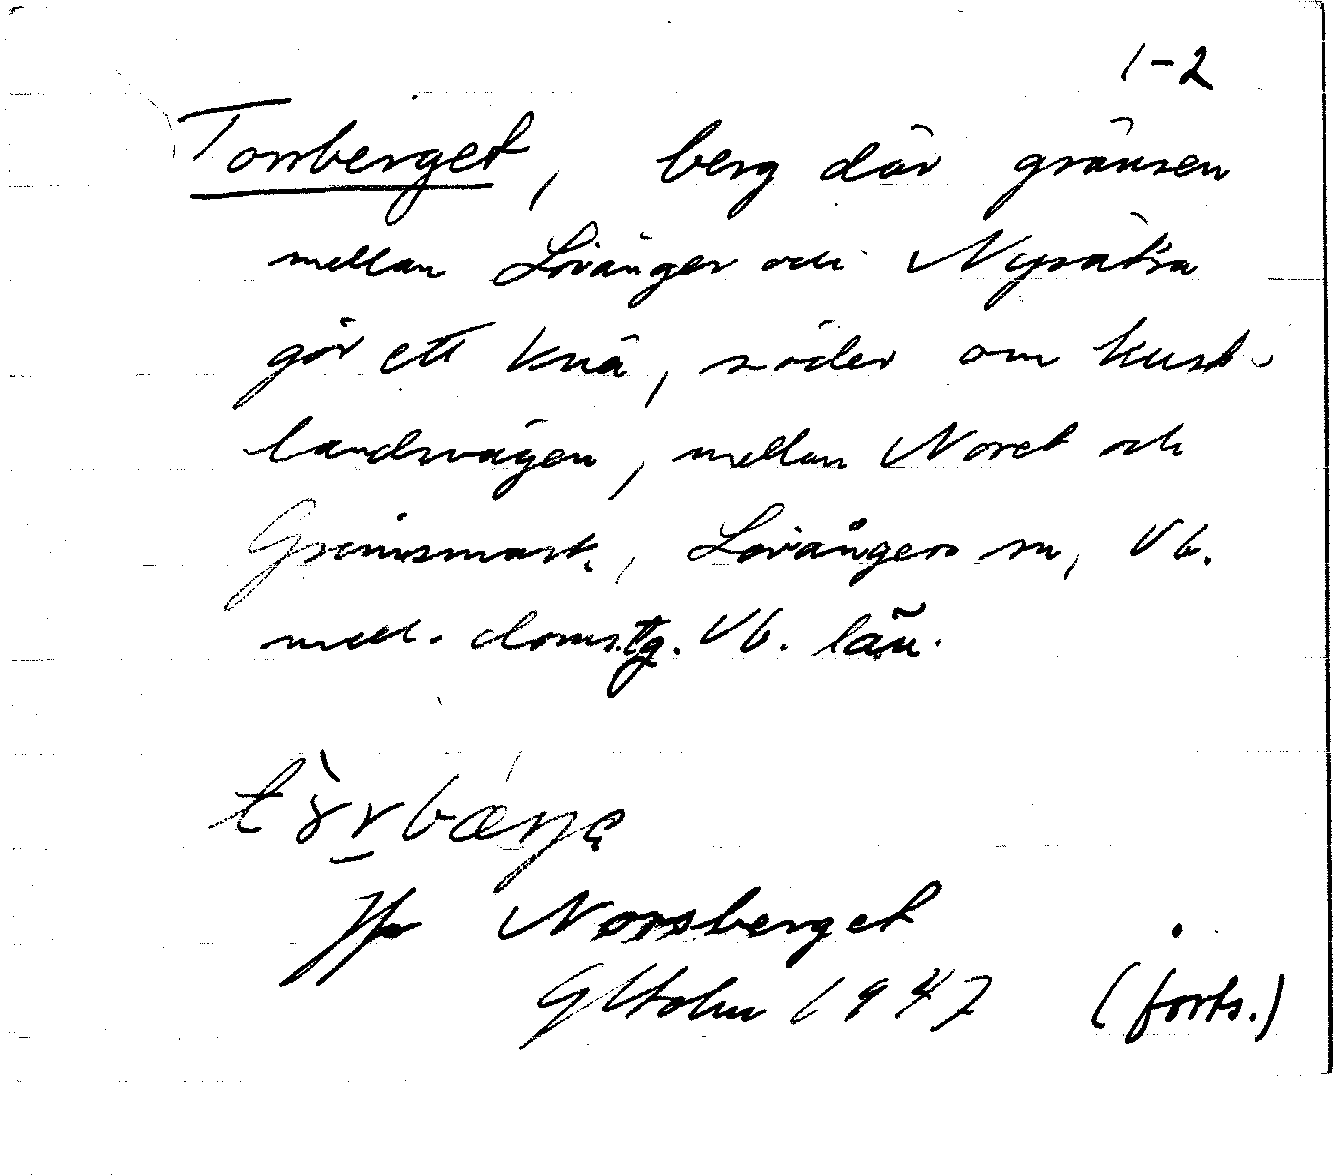 1-2
Torrberget, berg där gränsen
mellan Lövånger och Nysätra
gör ett knä, söder om kust-
landsvägen, mellan Noret och
Grimsmark, Lövångers sn, Vb.
mell. doms.tg. Vb. län.
Jfr Norsberget
GHolm 1947 (forts.)